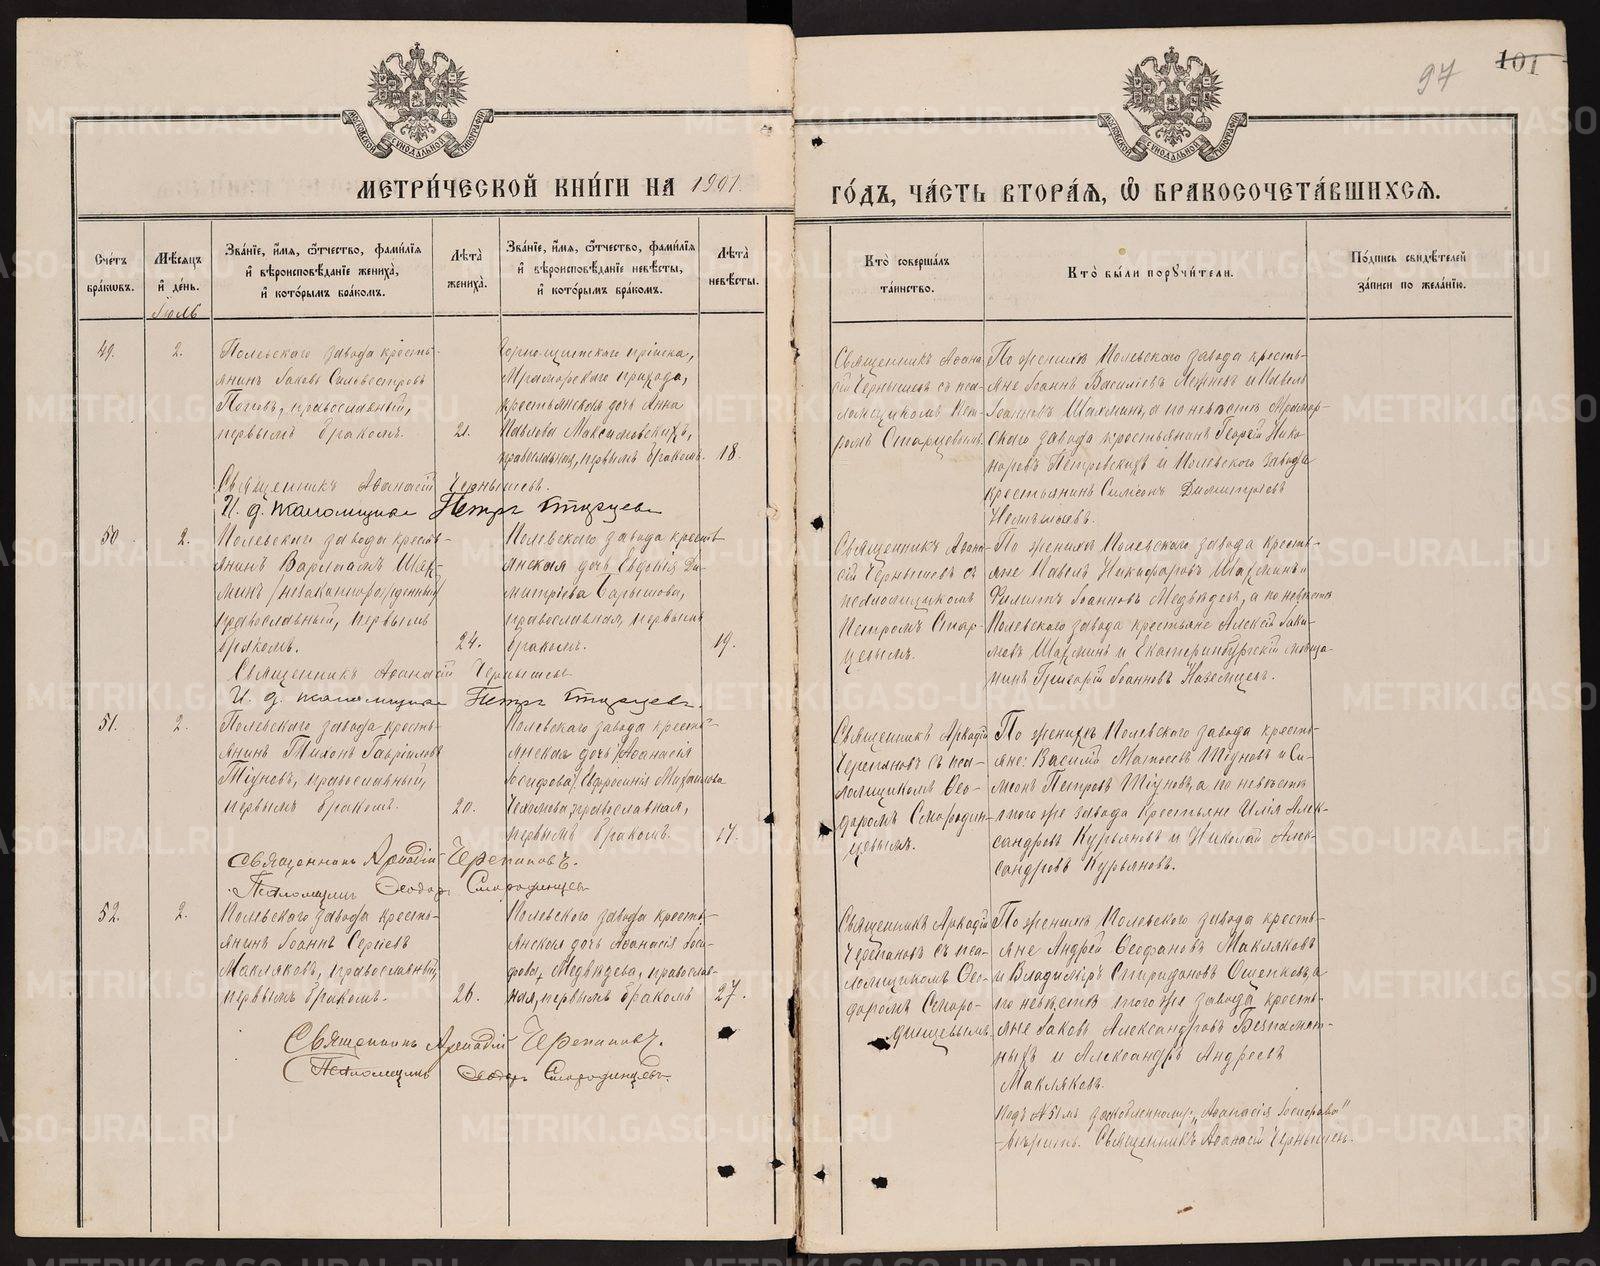 97 101
МОСКОВСКОЙ СѴНОДАЛЬНОЙ ТИПОГРАФІИ
МОСКОВСКОЙ СѴНОДАЛЬНОЙ ТИПОГРАФІИ
МЕТРИ́ЧЕСКОЙ КНИ́ГИ НА 1901
ГО́ДЪ, ЧА́СТЬ ВТОРА́Я, Ѽ БРАКОСОЧЕТА́ВШИХСЯ.
Сче́тъ
бра́кѡвъ.
Мѣ́сяцъ
и҆ де́нь.
Іюль
Зва́нїе, и҆́мя, ѻ҆́тчество, фами́лїя
и҆ вѣроисповѣ́данїе жениха̀,
и҆ кото́рымъ бра́комъ.
Лѣ́та
жениха̀.
Зва́нїе, и҆́мя, ѻ҆́тчество, фами́лїя
и҆ вѣроисповѣ́данїе невѣ́сты,
и҆ кото́рымъ бра́комъ.
Лѣ́та
невѣ́сты.
Кто̀ соверша́лъ
та́инство.
Кто̀ бы́ли порꙋчи́тели.
По́дпись свидѣ́телей
за́писи по жела́нїю.
49.
2.
Полевскаго завода кресть-
янинъ Іаковъ Силовестровъ
Поповъ, православный,
первымъ бракомъ.
21.
Горно-щитскаго пріиска,
Мраморскаго прихода,
крестьянская дочь Анна
Павлова Максимовскихъ,
православная, первымъ бракомъ.
18.
Священникъ Аѳана-
сій Чернышевъ съ пса-
ломщикомъ Пет-
ромъ Старцевымъ.
По женихѣ Полевскаго завода кресть-
яне Іоаннъ Василіевъ Лежневъ и Павелъ
Іоанновъ Шахминъ, а по невѣстѣ Мрамор-
скаго завода крестьянинъ Георгій Ника-
норовъ Петровскихъ и Полевскаго завода
крестьянинъ Симеонъ Димитріевъ
Священникъ Аѳанасій Чернышевъ.
И. д. псаломщика Петръ Старцевъ
50
2.
Полевскаго завода кресть-
янинъ Варлаамъ Шах-
минъ (незаконнорожденный)
православный, первымъ
бракомъ.
24.
Полевскаго завода кресть-
янская дочь Евдокія Ди-
митріева Барышова,
православная, первымъ
бракомъ.
19.
Священникъ Аѳана-
сій Чернышевъ съ
псаломщикомъ
Петромъ Стар-
цевымъ.
По женихѣ Полевскаго завода кресть-
яне Павелъ Никифоровъ Шахминъ и
Филиппъ Іоанновъ Медвѣдевъ, а по невѣстѣ
Полевскаго завода крестьяне Алексій Іаки-
мовъ Шахминъ и Екатеринбургскій мѣща-
нинъ Григорій Іоанновъ Каземцевъ.
Священникъ Аѳанасій Чернышевъ
И. д. псаломщика Петръ Старцевъ.
51.
2.
Полевскаго завода кресть-
янинъ Тихонъ Гавріиловъ
Тіуновъ, православный,
первымъ бракомъ.
20.
Полевскаго завода кресть-
янская дочь (Аѳанасія
Іосифова) Евфросинія Михайлова
православная,
первымъ бракомъ.
17.
Священникъ Аркадій
Черепановъ съ пса-
ломщикомъ Ѳео-
доромъ Смородин-
цевымъ.
По женихѣ Полевскаго завода кресть-
яне: Василій Матѳеевъ Тіуновъ и Си-
меонъ Петровъ Тіуновъ, а по невѣстѣ
того же завода крестьяне Илія Алек-
сандровъ Курьяновъ и Николай Алек-
сандровъ Курьяновъ.
Священникъ Аркадій Черепановъ.
Псаломщикъ Ѳеодоръ Смородинцевъ
52.
2.
Полевскаго завода кресть-
янинъ Іоаннъ Сергіевъ
Макляковъ, православный,
первымъ бракомъ.
26.
Полевскаго завода кресть-
янская дочь Аѳанасія Іоси-
фова Медвѣдева, православ-
ная, первымъ бракомъ
27.
Священникъ Аркадій
Черепановъ съ пса-
ломщикомъ Ѳео-
доромъ Сморо-
динцевымъ.
По женихѣ Полевскаго завода кресть-
яне Андрей Ѳеофановъ Макляковъ
и Владиміръ Спиридоновъ Ошепковъ, а
по невѣстѣ того же завода кресть-
яне Іаковъ Александровъ Безпамят-
ныхъ и Александръ Андреевъ
Макляковъ.
Священникъ Аркадій Черепановъ.
Псаломщикъ Ѳеодоръ Смородинцевъ.
Подъ № 51мъ заскобленному: „Аѳанасія Іосифова"
вѣрить. Священникъ Аѳанасій Чернышевъ.